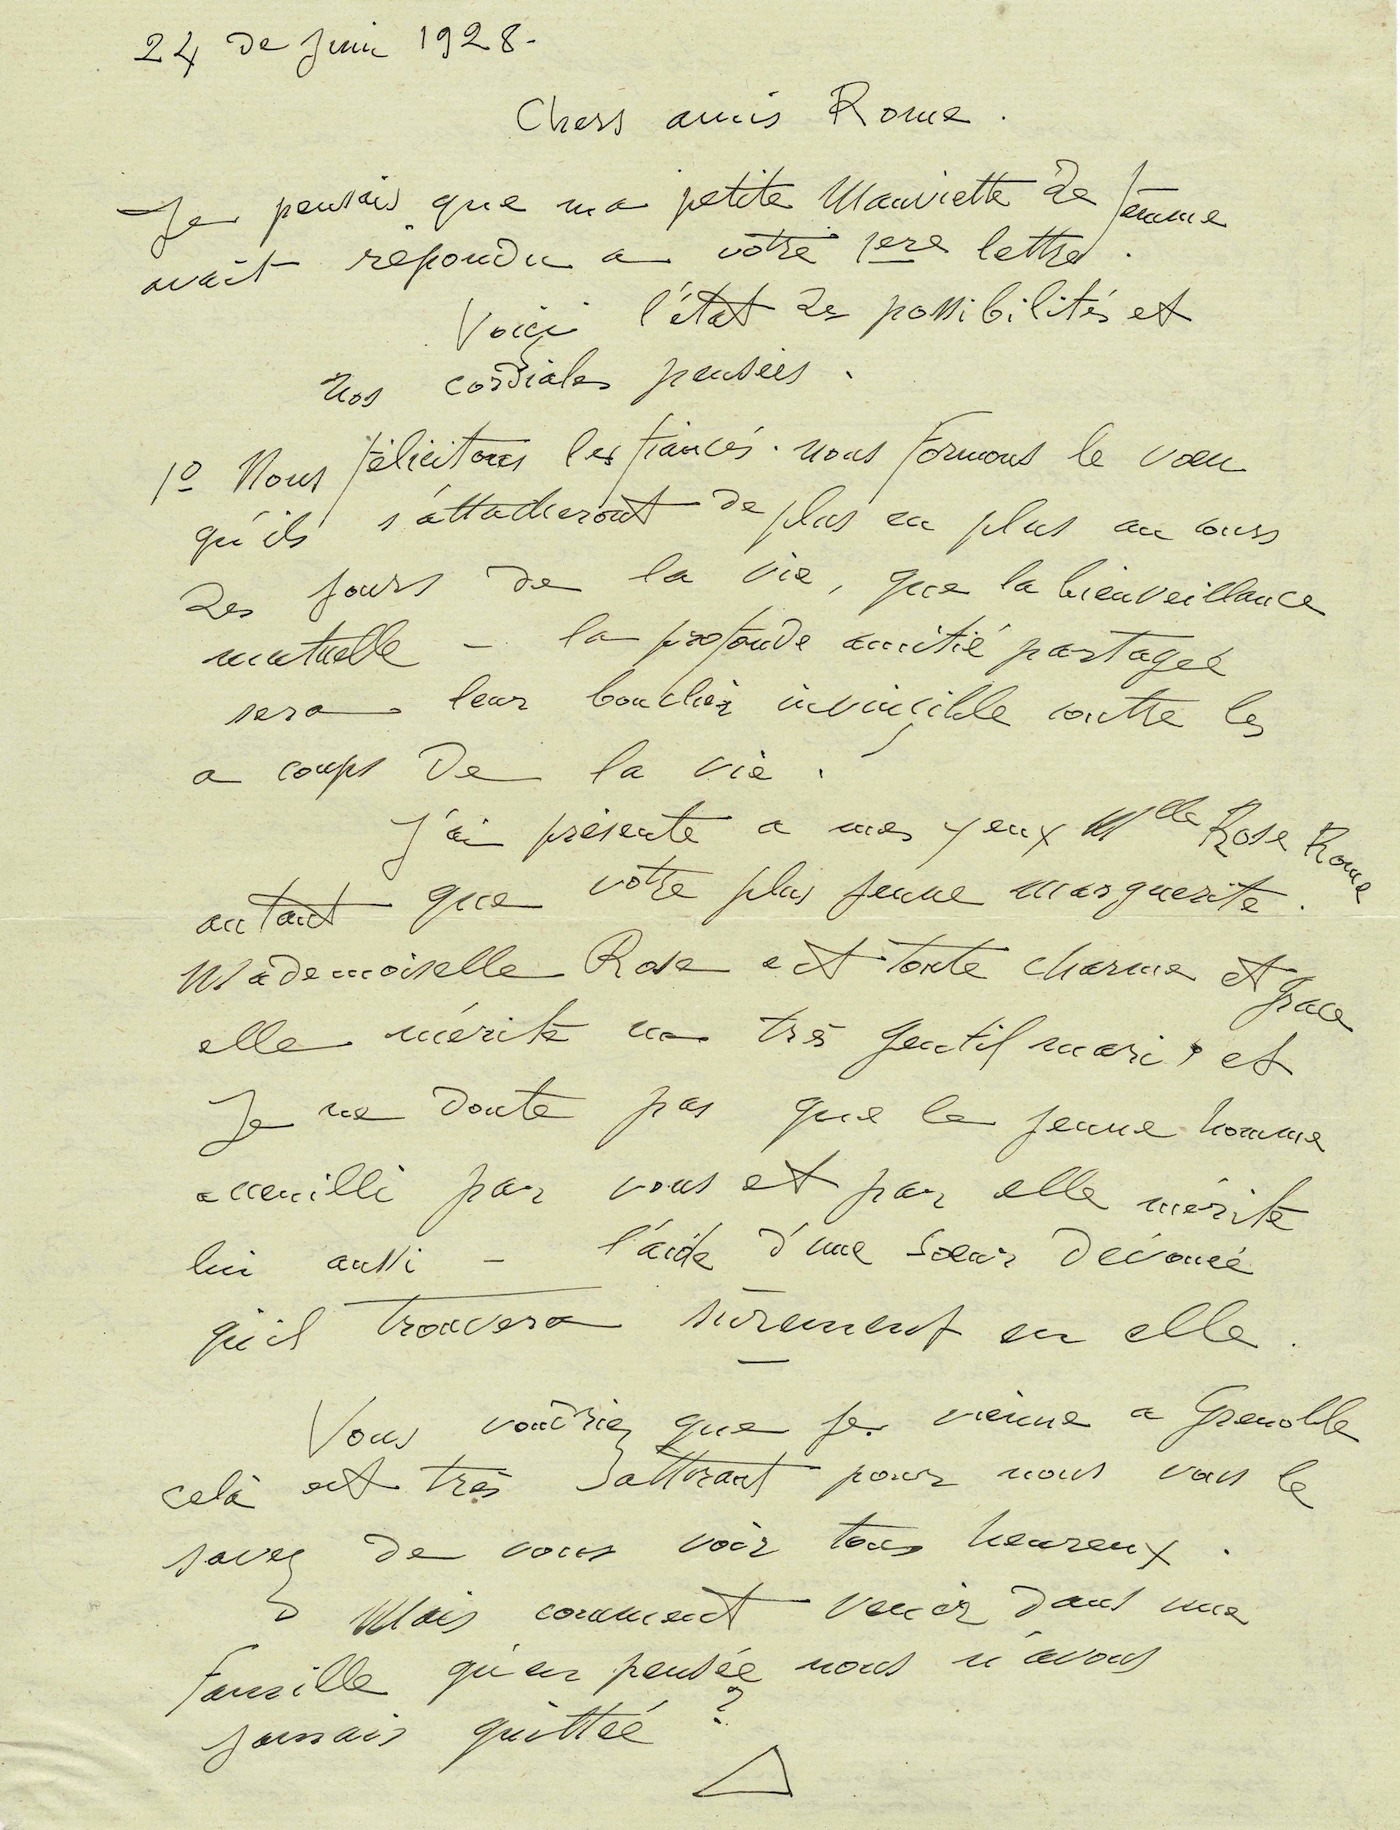 24 de Juin 1928.
Chers amis Rome.
Je pensais que ma petite Mauviette de femme
avait répondu a votre 1ere lettre.
Voici l'état des possibilités et
nos cordiales pensées.
1º Nous félicitons les fiancés. nous formons le vœu
qu'ils s'attacheront de plus en plus au cours
des jours de la vie, que la bienveillance
mutuelle - la profonde amitié partagée
sera leur bouclier invincible contre les
a coups de la vie.
J'ai présente a mes yeux Mlle Rose Rome
autant que votre plus jeune marguerite.
Mademoiselle Rose est toute charme et grace
elle mérite un très gentil mari, et
Je ne doute pas que le jeune homme
accueilli par vous et par elle mérite
lui aussi - l'aide d'une soeur dévouée
qu'il trouvera sûrement en elle.
Vous voudriez que je vienne a Grenoble
celà est très attirant pour nous vous le
savez de vous voir tous heureux.
Mais comment venir dans une
Famille qu'en pensée nous n'avons
jamais quittée ?